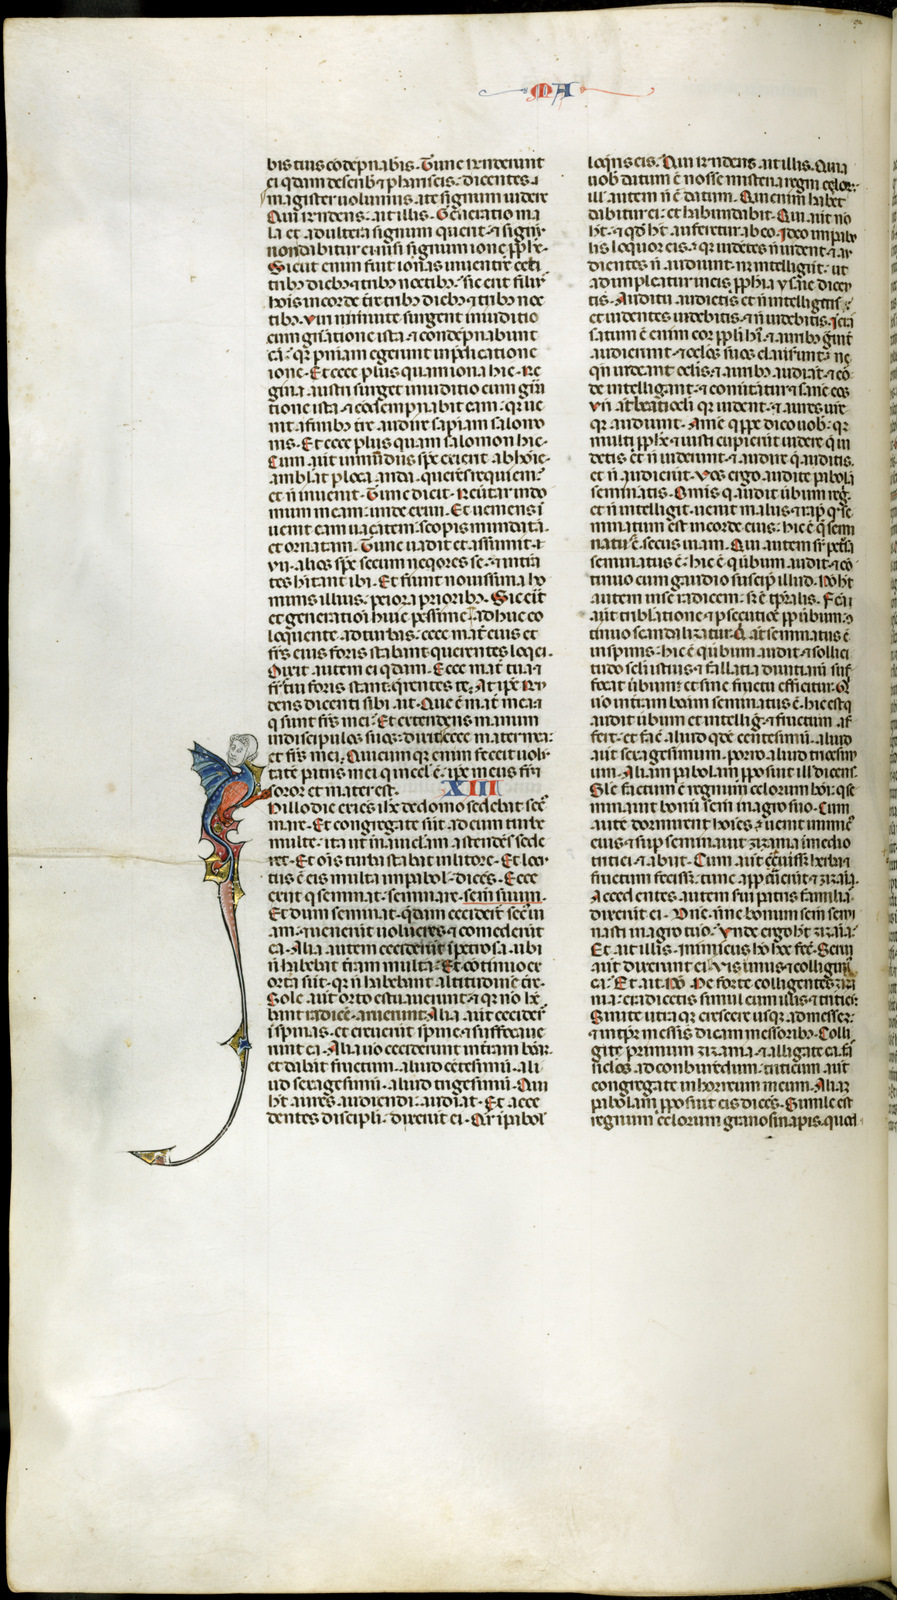 MA
bis tuis cōdēpnabis. Tunc rñderunt
ei qdam de scrib̄ & phariseis. dicentes.
magister uolumus a te signum uidere
Qui rñdens. ait illis. Generatio ma
la et adultera signum querit. & signū
non dabitur ei nisi signum ione pphe.
Sicut enim fuit ionas in uentre ceti
trib; dieb; & trib; noctib;. sic erit filiꝰ
hois in corde tre trib; dieb; & trib; noc
tib;. Viri niniuite surgent in iuditio
cum gñatione ista. & condēpnabunt
eā. qꝛ pniam egerunt in pdicatione
ione. Et ecce plus quam iona hic. Re
gina austri surget in iuditio cum gñā
tione ista. & cōdempnabit eam. qꝛ ue
nit a finib; tre audire sapiam salomo
nis. Et ecce plus quam salomon hic.
Cum aut inmūdus spc exierit ab hoīe.
ambulat p loca arida. querēs requiem.
et ñ inuenit. Tunc dicit. Reūtar in do
mum meam. unde exiui. Et ueniens ī
uenit eam uacantem. scopis mundatā.
et ornatam. Tunc uadit et assumit.
vii. alios spc secum neqores se. & intrā
tes hītant ibi. Et fiunt nouissima ho
minis illius. peiora priorib;. Sic erit
et generationi huic pessime. Adhuc eo
loquente ad turbas. ecce mat eius et
frs eius foris stabant querentes loqi ei.
Dixit autem ei qdam. Ecce mat tua &
fr tui foris stant. qrentes te. At ipe rñ
dens dicenti sibi ait. Que ē mat mea &
q sunt frs mei. Et extendens manum
in discipulos suos. dixit ecce mater mea.
et frs mei. Quicumqꝛ enim fecerit uolū
tatē pitris mei q in cel ē. ipe meus frr
soror et mater est.
XIII
N illo die exiēs ihc de domo sedebat sec̄
mare. Et congregate sūt ad eum turbe
multe. ita ut in nauiclam ascendēs sede
ret. Et oīs turba stabat in litore. Et locu
tus ē eis multa in pabol. dicēs. Ecce
exiit q seminat. seminare. semen suum.
Et dum seminat. qdam cecidert secꝰ ui
am. & uenerunt uolucres & comederūt
ea. Alia autem ceciderūt ī petrosa. ubi
ñ habebāt tram multā. Et cōtinuo ex
orta sūt. qꝛ ñ habebant altitudinē tre.
Sole aut orto estuauerunt. & qꝛ no hē
bant radicē. aruerunt. Alia aut cecider̄
ī spinas. et creuerunt spine & suffocaue
runt ea. Alia uō ceciderunt in tram bonā.
et dabāt fructum. aliud cētesimū. ali
ud sexagesimū. aliud trigesimū. Qui
ht aures audiendi. audiat. Et acce
dentes discipli. dixerūt ei. Qr ī pabol
loqris eis. Qui rñdens ait illis. Quia
uob datum ē nosse misteria regni celoꝝ.
ill autem ñ ē datum. Qui enim habet
dabitur ei. et habundabit. Qui aut nō
ht. & qd ht auferetur ab eo. Ideo in pabo
lis loquor eis. qꝛ uidētes ñ uident. & au
dientes ñ audiunt. nec intelligūt. ut
adimpleatur in eis pphia ysaie dicen
tis. Auditu audietis et ñ intelligetis.
et uidentes uidebitis. & ñ uidebitis. Icra
satum ē enim cor ppli hꝰ. & aurib; grauit
audierunt. & oclos suos clauserunt. ne
qn uideant oclis. & aurib; audiāt. & cor
de intelligant. & cōuertātur & sanē eos
Vri aūt beati ocli qꝛ uident. & aures ure
qꝛ audiunt. Amē qppe dico uob. qꝛ
multi pphe. & iusti cupierūt uidere q ui
detis et ñ uiderunt. & audire q auditis.
et ñ audierūt. Vos ergo audite pabolā
seminātis. Omis q audit ūbum regni
et ñ intelligit. uenit malus. & rapit qd se
minatum est in corde eius. hic ē q semi
natꝰ ē. secus uiam. Qui autem sup petrosa
seminatus ē. hic ē q ūbum audit. & cō
tinuo cum gaudio suscipit illud. Nō ht
autem in se radicem. s; ē tpralis. Facta
aut tribulatione & psecutiōe pp ūbum. cō
tinuo scandalizatur. Q aūt seminatus ē
in spinis. hic ē q ūbum audit. & sollici
tudo scli istius. & fallatia diuitiarū suf
focat ūbum. et sine fructu efficitur. Q
uō in tram bonam seminatus ē. hic est q
audit ūbum et intelligit. & fructum af
fert. et facit aliud qde centesimū. aliud
aut sexagesimum. porro aliud tricesim
um. Aliam pabolam pposuit ill dicens.
Sile factum ē regnum celorum hoī. q se
minauit bonū semen in agro suo. Cum
autē dormirent hoīes. uenit inimicꝰ
eius. & supseminauit zizania in medio
tritici. & abiit. Cum aut creuiss; herba &
fructum feciss;. tunc appuerūt & zizania.
Accedentes autem serui patris familias
dixerunt ei. Dne. nōne bonum semen semi
nasti in agro tuo. Vnde ergo ht zizania.
Et ait illis. Inimicus hō hoc fec. Serui
aut dixerunt ei. Vis imus & colligimꝰ
ea. Et ait. Nō. Ne forte colligentes ziza
nia. eradicetis simul cum illis & triticū.
Sinite utraqꝛ crescere usqꝛ ad messem.
& in tpr messis dicam messorib;. Colli
gite primum zizania. & alligate ea fas
ciclos ad conburendum. triticum aut
congregate in horreum meum. Aliam
pabolam pposuit eis dicēs. Simile est
regnum celorum grano sinapis. quod